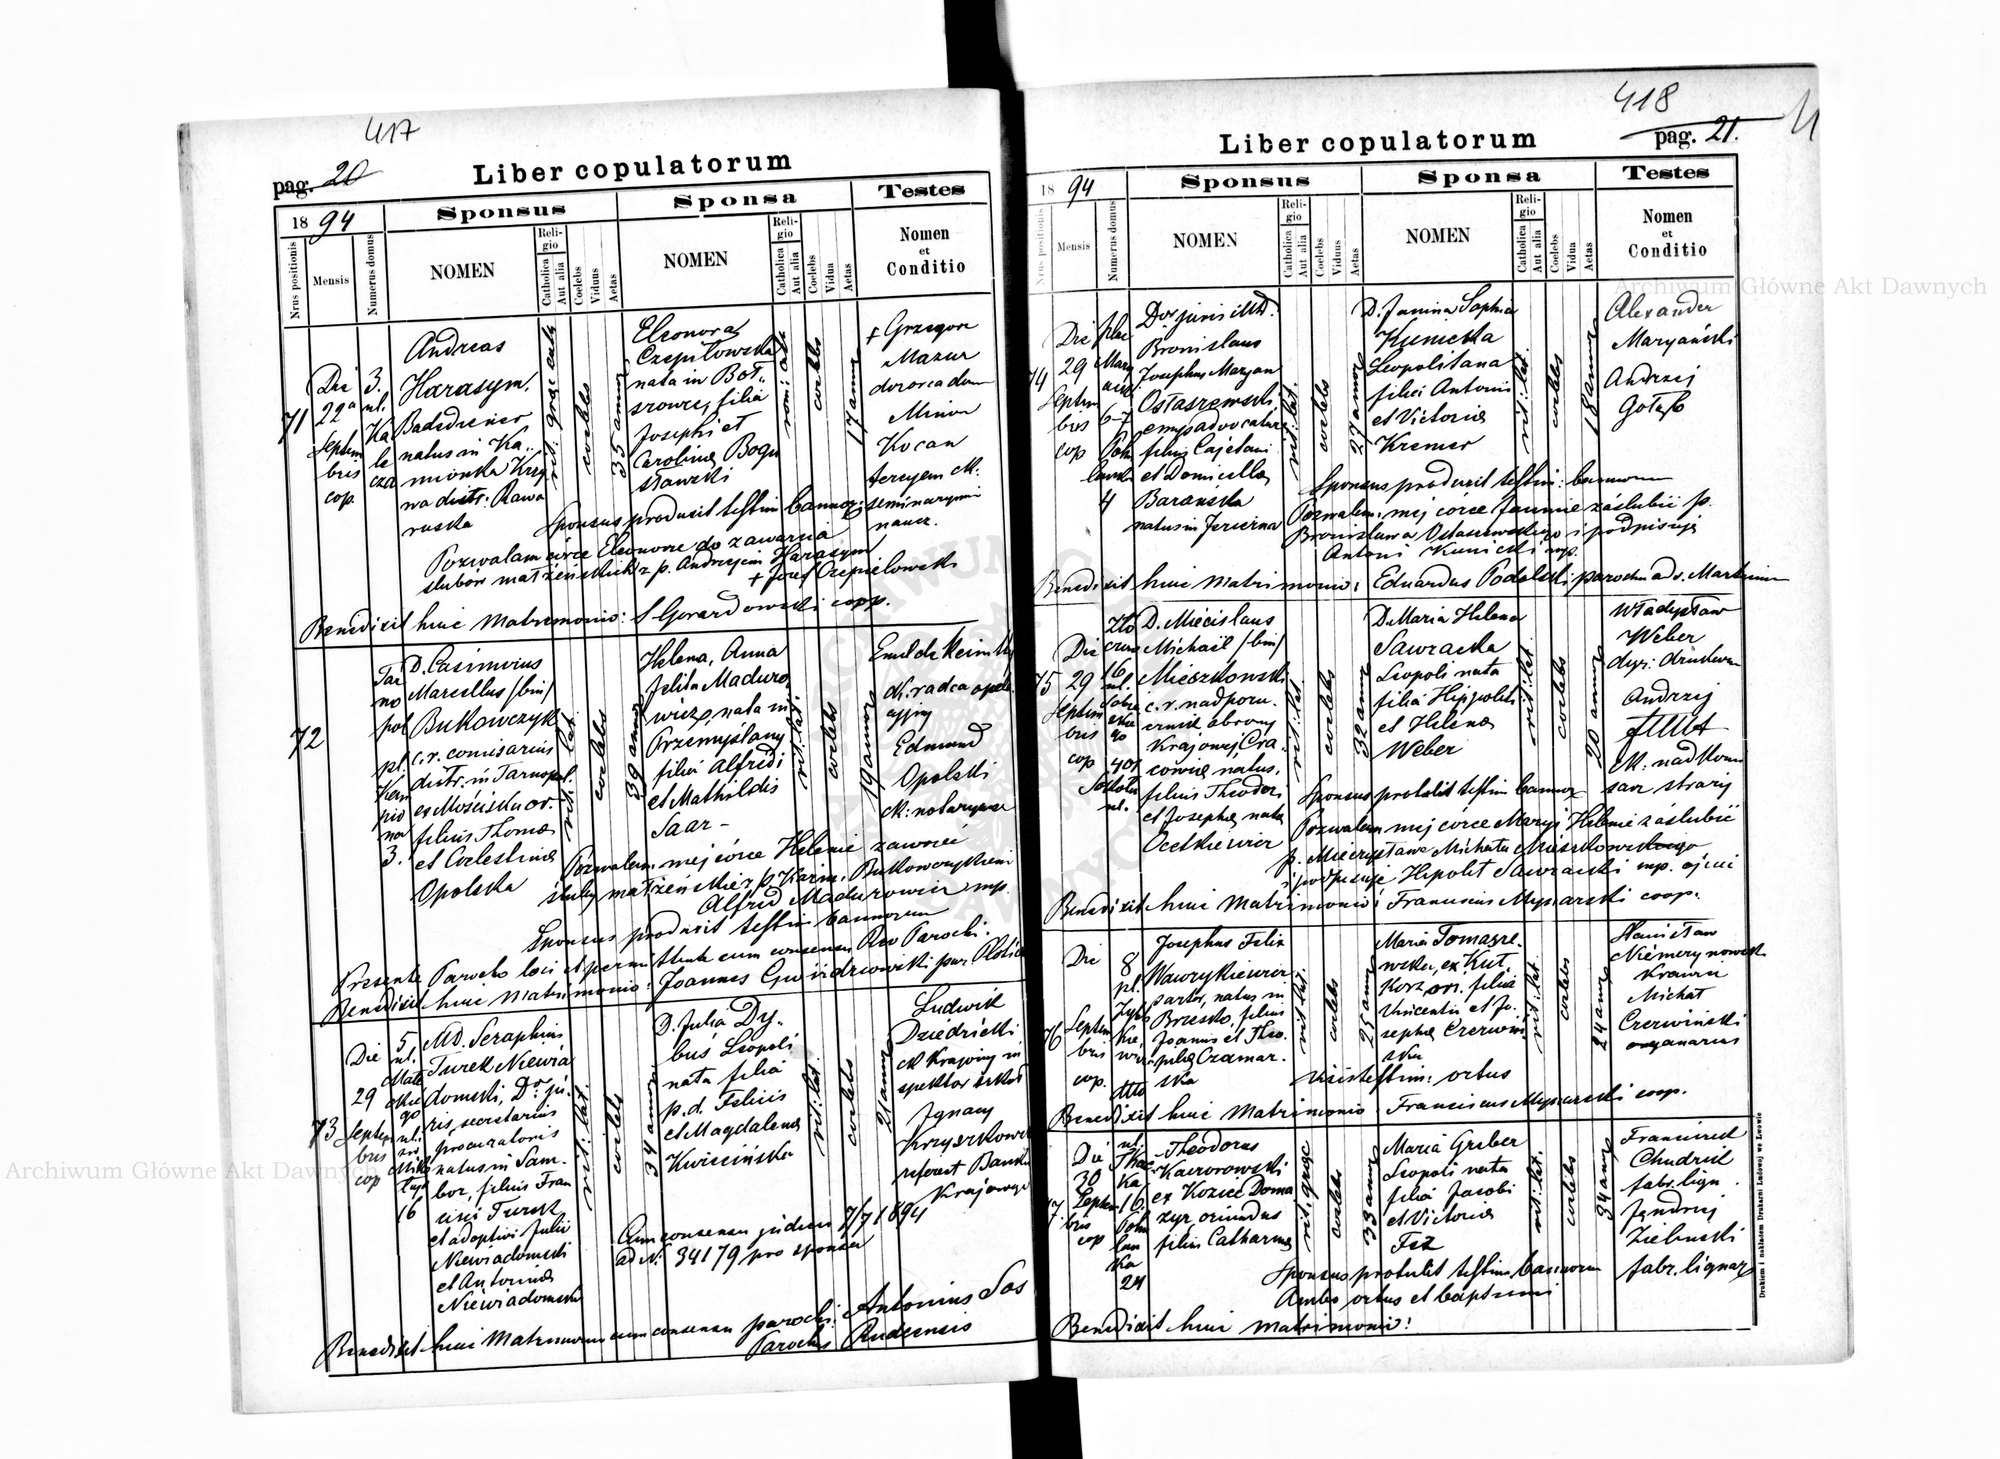 417
pag. 20
Liber copulatorum
1894
Sponsus
Sponsa
Testes
Nrus positionis
Mensis
Numerus domus
NOMEN
Religio
Catholica
Aut alia
Coelebs
Viduus
Aetas
NOMEN
Religio
Catholica
Aut alia
Coelebs
Vidua
Aetas
Nomen
et
Conditio
71
Die
22a
Septem
bris
cop.
3.
ul.
Ka
le
cza
Andreas
Harasym,
natus in Ka,,
mionka Krzy
wa distr: Rawa
ruska
rit: graec cath
coelebs
35 annor
Eleonora
Czepilowska
nata in Boł,,
szowce, filia
Josephi et
Carolina Bogu
sławski
rom: cath
coelebs
17 annor
+ Grzegorz
Mazur
dozorca dom
Kocan
tercyan ck.
seminarymi
naucz.
Sponsus produxit testim bannor:
Pozwalam córce Eleonorze do zawarcia
ślubów małżeńskich z p. Andrzejem Harasym
+ Józef Czepielowski
Benedixit huic Matrimonio: S Gerardowski coop.
72
Tar
no
pol
pl.
3.
D. Casimirus
Marcellus /bin/
Bukowczyk
c. r. comisarius
distr. in Tarnopol.
ex Mościska or.
filius Thomae
et Coelestinae
Opolska
rit: lat
coelebs
39 annor
Helena, Anna
Julita Maduro,
wicz, nata in
Przemyślany
filia Alfredi
et Mathildis
Saar -
rit: lat
coelebs
19 annor
ck. radca apela
cyjny
Edmund
Opolski
ck: notaryusz
Pozwalam mej córce Helenie zawrzeć
śluby małżeńskie z p. Kazim. Bukowczykiem
Alfred Madurowicz mp.
Sponsus produxit testim bannorum
Praesente Parocho loci et permittente cum consensu Rev Parochi.
Benedixit huic Matrimonio: Joannes Gwiździowski par.
73
Die
29
Septem
bris
cop
5
ul.
16
MD. Seraphinus
Turek Niewia
domski, Dor. ju,
ris, secretarius
procuratoris
natus in Sam-
bor, filius Fran
cisci Turek
et adoptivi Julii
Niewiadomski
et Antoniae
Niewiadomska
rit: lat
coelebs
34 annor
D. Julia Dy,,
buś Leopoli
nata filia
p. d. Felicis
et Magdalenae
Kwiecińska
rit: lat
coelebs
21 annor
Ludwik
Dziedzicki
ck Krajowy in
spektor szkół
Ignacy
Krzyszkowski
referent Banku
Krajowego
Cum consensu judicii 7/7 1894
ad N. 34179 pro sponsa
Benedixit huic Matrimonio cum consensu parochi: Antonius Sas
Parochus Rudcensis
418
pag. 21.
Liber copulatorum
1894
Sponsus
Sponsa
Testes
Nrus positionis
Mensis
Numerus domus
NOMEN
Religio
Catholica
Aut alia
Coelebs
Viduus
Aetas
NOMEN
Religio
Catholica
Aut alia
Coelebs
Vidua
Aetas
Nomen
et
Conditio
74
Die
29
Septem
bris
cop
plac
Mary
acki
6-7
4
Dor juris MD.
Bronislaus
Josephus Maryan
Ostaszewski
filius Cajetani
et Domicellae
Barańska
natus in Jezierna
rit: lat.
coelebs
29 annor
D. Janina Sophia
Kunicka
Leopolitana
filia Antonii
et Victoriae
Kremer
rit: lat.
coelebs
18 annor
Alexander
Maryański
Andrzej
Gołąb
Sponsus produxit testim: bannorum
Pozwalam mej córce Janinie zaślubić p.
Bronisława Ostaszewskiego i podpisuję
Antoni Kunicki mp.
Benedixit huic Matrimonio: Eduardus Podolski parochus ad s. Martinum
75
Die
29
Septem
bris
cop
16
ul.
D. Miecislaus
Michaël /bin/
Mieszkowski
c. r. nadporu.
cznik obrony
Krajowej, Cra,
coviae natus,
filius Theodori
et Josepha nata
Ocetkiewicz
rit: lat
coelebs
32 annor
D. Maria Helena
Sawczacka
Leopoli nata
filia Hippoliti
et Helenae
Weber
rit: lat
coelebs
20 annor
Władysław
Weber
dyr: drukarni
Andrzej
ck: nadkomi
sarz straży
Sponsus protulit testim bannor
Pozwalam mej córce Maryi Helenie zaślubić
p. Mieczysława Michała Mieszkowskiego
i podpisuję Hipolit Sawczacki mp. ojciec
Benedixit huic Matrimonio: Franciscus Mynarski coop.
76
Die
Septem
bris
cop.
8
pl.
Josephus Felix
Wawrzykiewicz
sartor, natus in
Brzesko, filius
Joannis et Theo.
phila Czamar.
ska
rit: lat.
coelebs
25 annor
Maria Tomasze.
wska, ex Kut.
Korz ori. filia
Vincentii et Jo.
sepha Czerwiń
ska
rit: lat.
coelebs
24 annor
Stanisław
Niemerynowski
Krawiec
Michał
Czerwiński
organarius
Visis testim: ortus
Benedixit huic Matrimonio: Franciscus Mynarski coop.
77
Die
30
Septem
bris
cop
ul.
16.
24
Theodorus
Kaczorowski
ex Koziec Doma
zyr, oriundus
filius Catharinae
rit. graec
coelebs
33 annor
Maria Greber
Leopoli nata
filia Jacobi
et Victoriae
Fez
rit: lat.
coelebs
34 annor
Franciszek
Chudzik
fabr. lign.
Jędrzej
Zieliński
fabr. lignar
Sponsus protulit testim bannorum
Ambo ortus et baptismi
Benedixit huic Matrimonio:
Drukiem i nakładem Drukarni Ludowej we Lwowie
Archiwum Główne Akt Dawnych
Archiwum Główne Akt Dawnych